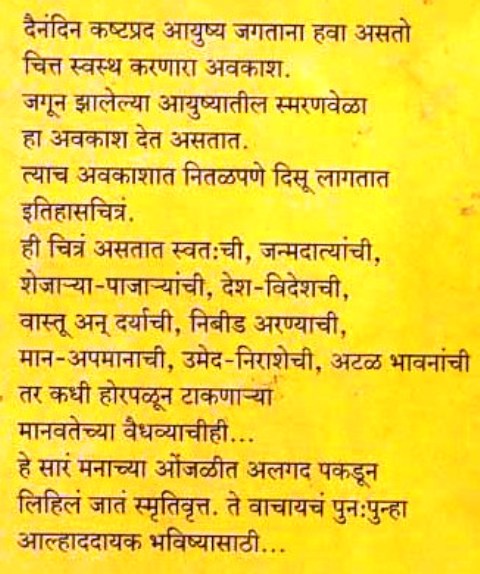 दैनंदिन कष्टप्रद आयुष्य जगताना हवा असतो
चित्त स्वस्थ करणारा अवकाश.
जगून झालेल्या आयुष्यातील स्मरणवेळा
हा अवकाश देत असतात.
त्याच अवकाशात नितळपणे दिसू लागतात
इतिहासचित्रं.
ही चित्रं असतात स्वत:ची, जन्मदात्यांची,
शेजाऱ्या-पाजाऱ्यांची, देश-विदेशची,
वास्तू अन् दर्याची, निबीड अरण्याची,
मान-अपमानाची, उमेद-निराशेची, अटळ भावनांची
तर कधी होरपळून टाकणाऱ्या
मानवतेच्या वैधव्याचीही...
हे सारं मनाच्या ओंजळीत अलगद पकडून
लिहिलं जातं स्मृतिवृत्त. ते वाचायचं पुन:पुन्हा
आल्हाददायक भविष्यासाठी...